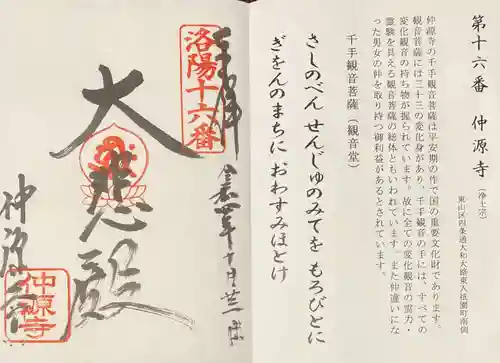 第十六番 仲源寺(浄土宗)
東山区四条通大和大路東入祇園町南側
仲源寺の千手観音菩薩は平安期の作で国の重要文化財であります。
観音菩薩には三十三の変化身があり、千手観音の手には、すべての
変化観音の持ち物が握られています。故に全ての変化観音の霊力・
霊験を具える観音菩薩の総体ともいわれています。また仲違いにな
った男女の仲を取り持つ御利益があるとされています。
千手観音菩薩(観音堂)
さしのべん せんじゅのみてを もろびとに
ぎをんのまちに おわすみほとけ
奉拝
洛陽十六番
大悲殿
仲源寺
仲源寺